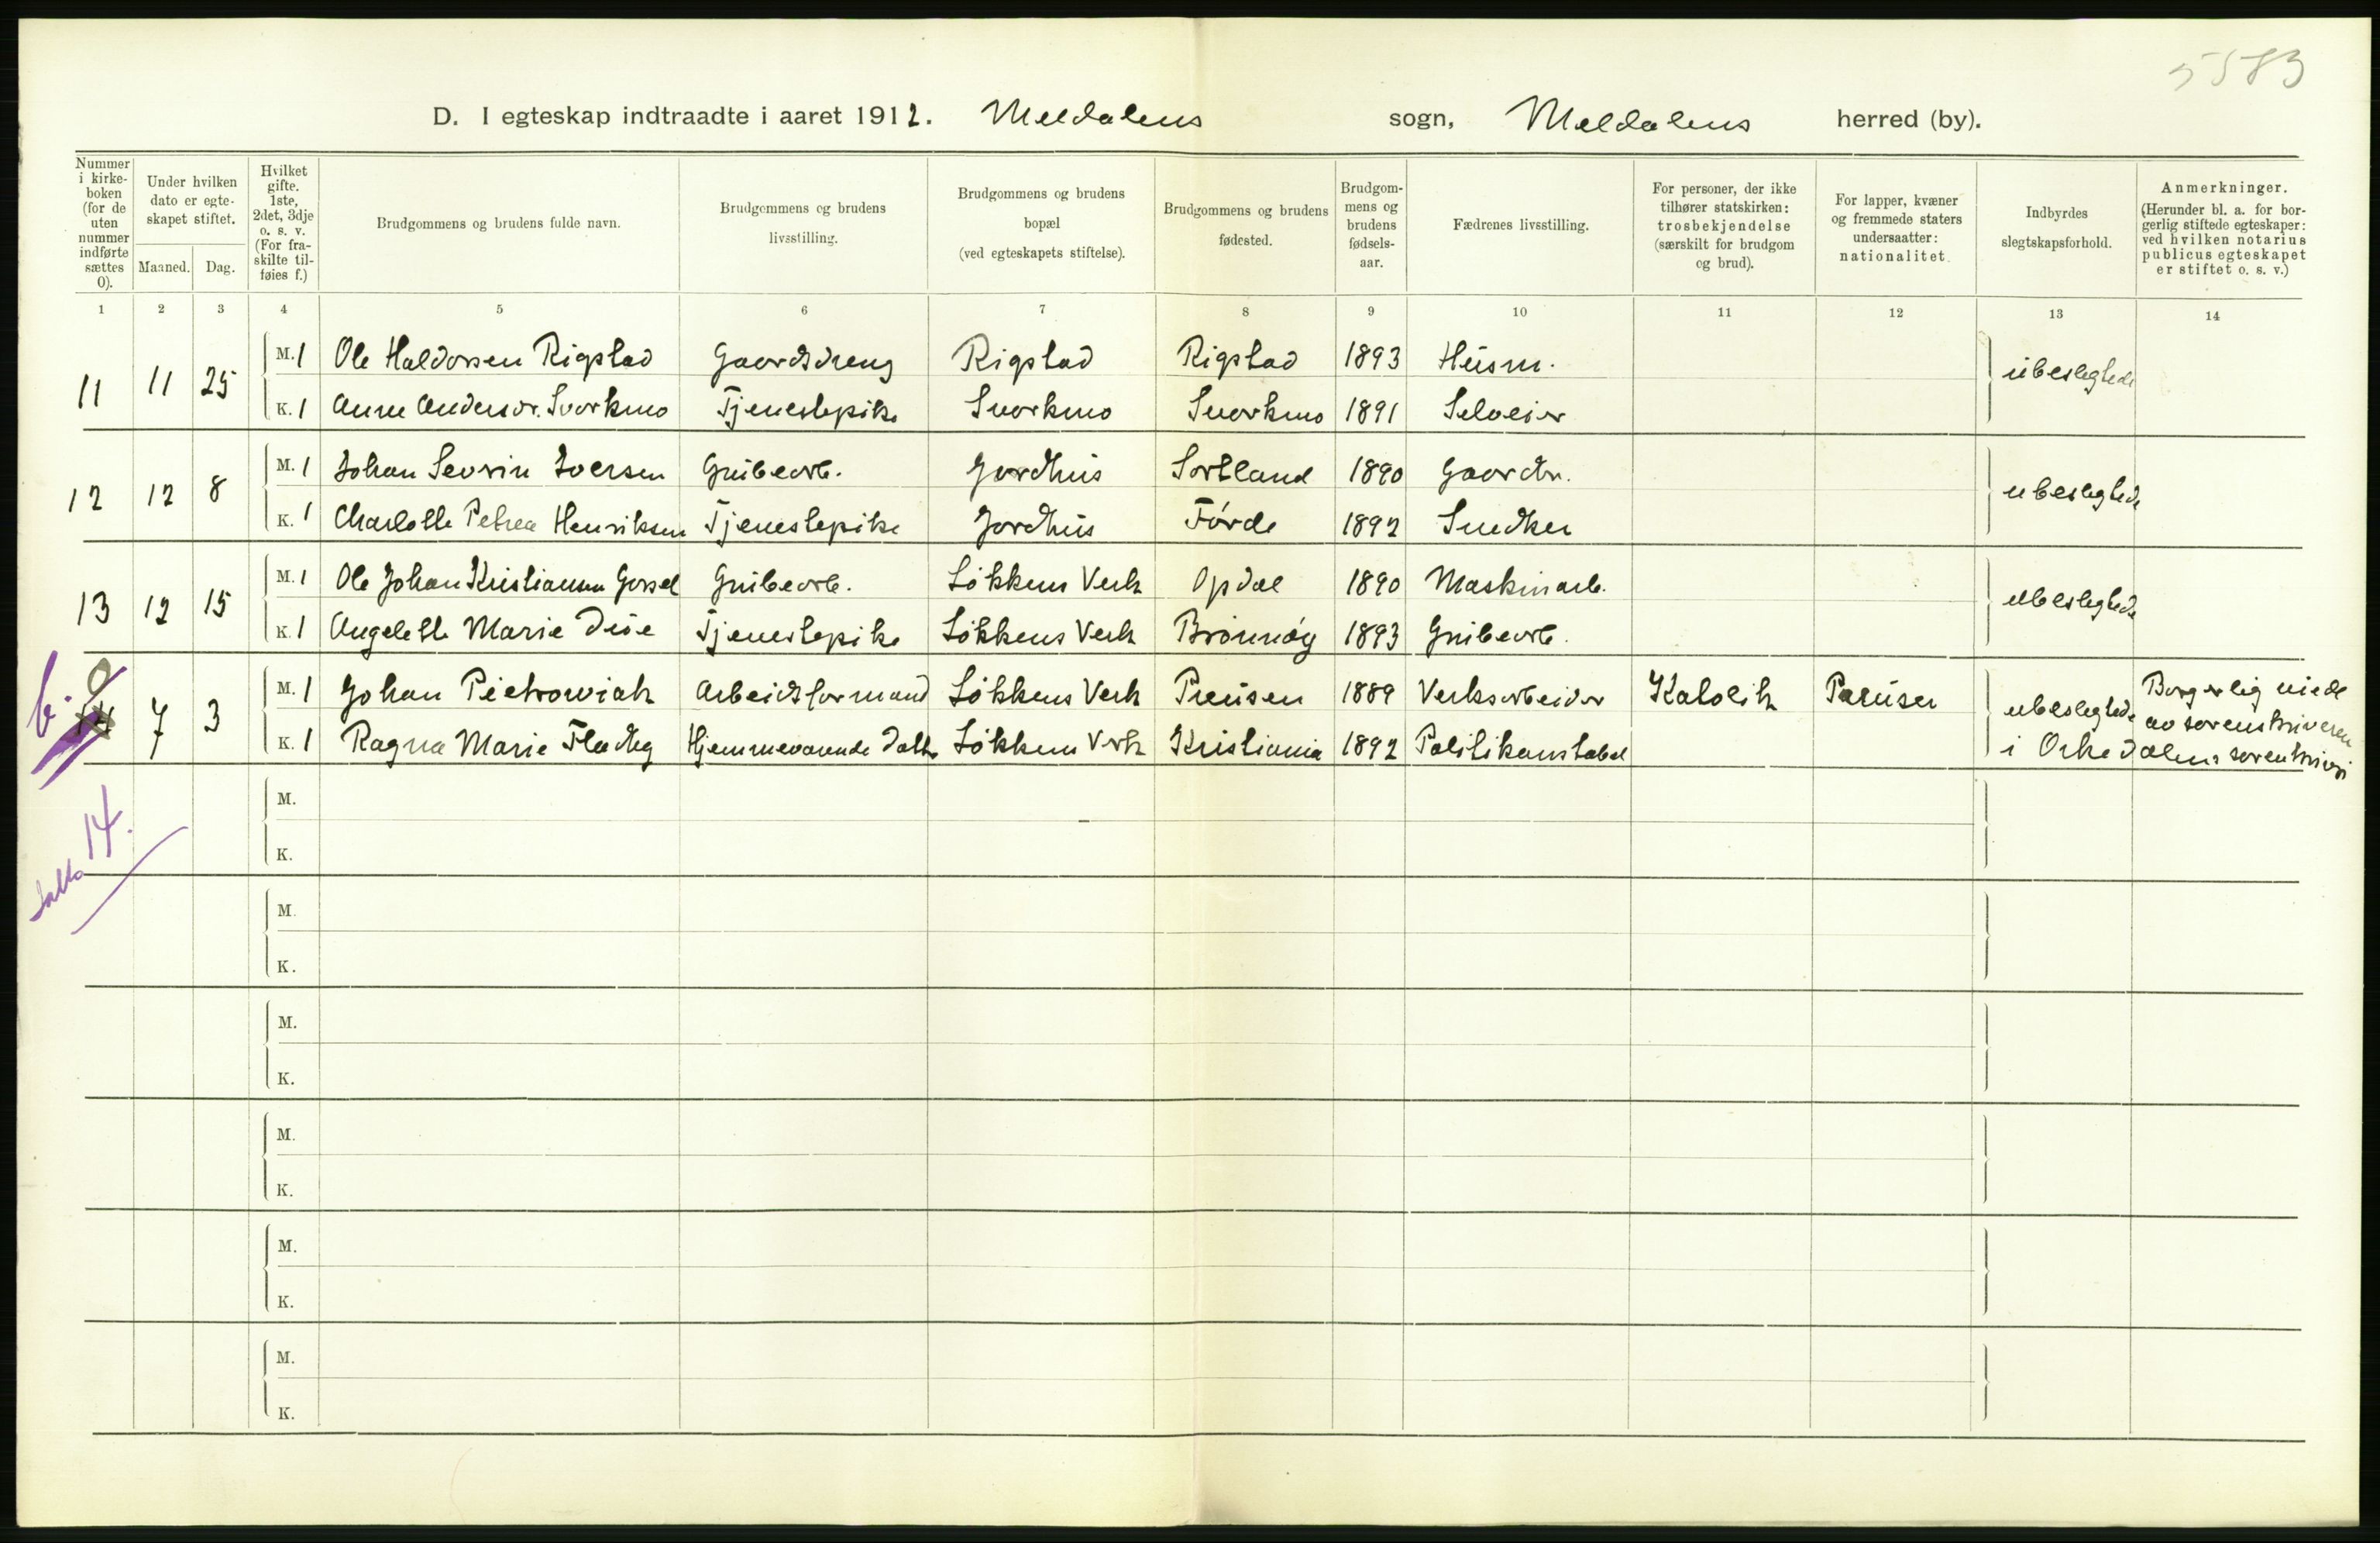 5583
D. I egteskap indtraadte i aaret 1912. Meldalens sogn, Meldalens herred (by).
Nummer i kirkeboken (for de uten nummer indførte sættes 0).
Under hvilken dato er egteskapet stiftet.
Maaned. Dag.
Hvilket gifte. 1ste, 2det, 3dje o. s. v. (For fraskilte tilføies f.)
Brudgommens og brudens fulde navn.
Brudgommens og brudens livsstilling.
Brudgommens og brudens bopæl (ved egteskapets stiftelse).
Brudgommens og brudens fødested.
Brudgommens og brudens fødselsaar.
Fædrenes livsstilling.
For personer, der ikke tilhører statskirken: trosbekjendelse (særskilt for brudgom og brud).
For lapper, kvæner og fremmede staters undersaatter: nationalitet.
Indbyrdes slegtskapsforhold.
Anmerkninger. (Herunder bl. a. for borgerlig stiftede egteskaper: ved hvilken notarius publicus egteskapet er stiftet o. s. v.)
1 2 3 4 5 6 7 8 9 10 11 12 13 14
11 11 25 M. 1 Ole Haldorsen Rigstad Gaardsdreng Rigstad Rigstad 1893 Husm. ubeslegtede
K. 1 Anne Andersdr. Svorkmo Tjenestepike Svorkmo Svorkmo 1891 Selveier
12 12 8 M. 1 Johan Sevrin Iversen Grubearb. Jordhus Sortland 1890 Gaardbr. ubeslegtede
K. 1 Charlotte Petrea Henriksen Tjenestepike Jordhus Førde 1892 Snedker
13 12 15 M. 1 Ole Johan Kristiansen Gorsel Grubearb. Løkkens Verk Opdal 1890 Maskinarb. ubeslegtede
K. 1 Angelette Marie Due Tjenestepike Løkkens Verk Brønnøy 1893 Grubearb.
b. 0 14 7 3 M. 1 Johan Pietrowiak Arbeidsformand Løkkens Verk Preusen 1889 Verksarbeider Katolik Preuser ubeslegtede Borgerlig viede av sorenskriveren
K. 1 Ragna Marie Fladby Hjemmeværende Datter Løkkens Verk Kristiania 1892 Politikonstabel i Orkedalens sorenskriveri
M.
K.
14.
M.
K.
M.
K.
M.
K.
M.
K.
M.
K.